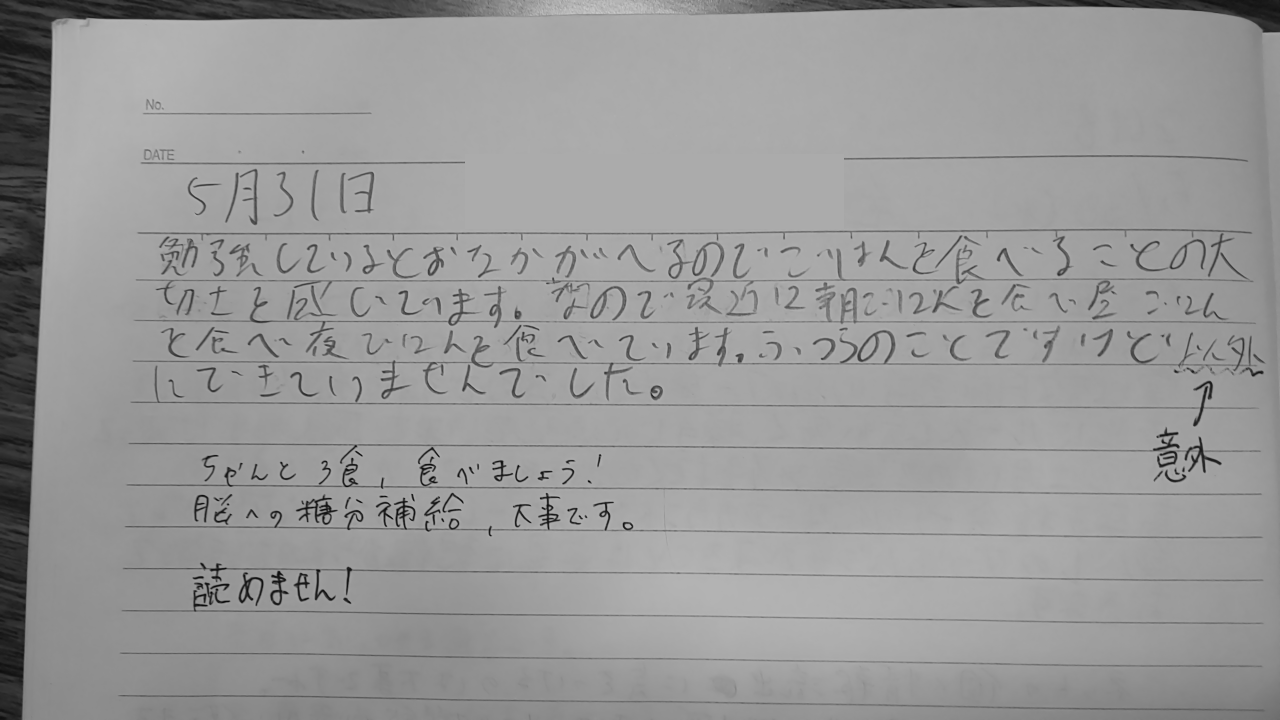 No.
DATE
5月31日
勉強しているとおなかがへるのでごはんを食べることの大
切さを感じています。なので最近は朝ごはんを食べ昼ごはん
を食べ夜ごはんを食べています。ふつうのことですけど以外
にできていませんでした。
意外
ちゃんと3食,食べましょう!
脳への糖分補給,大事です。
読めません!